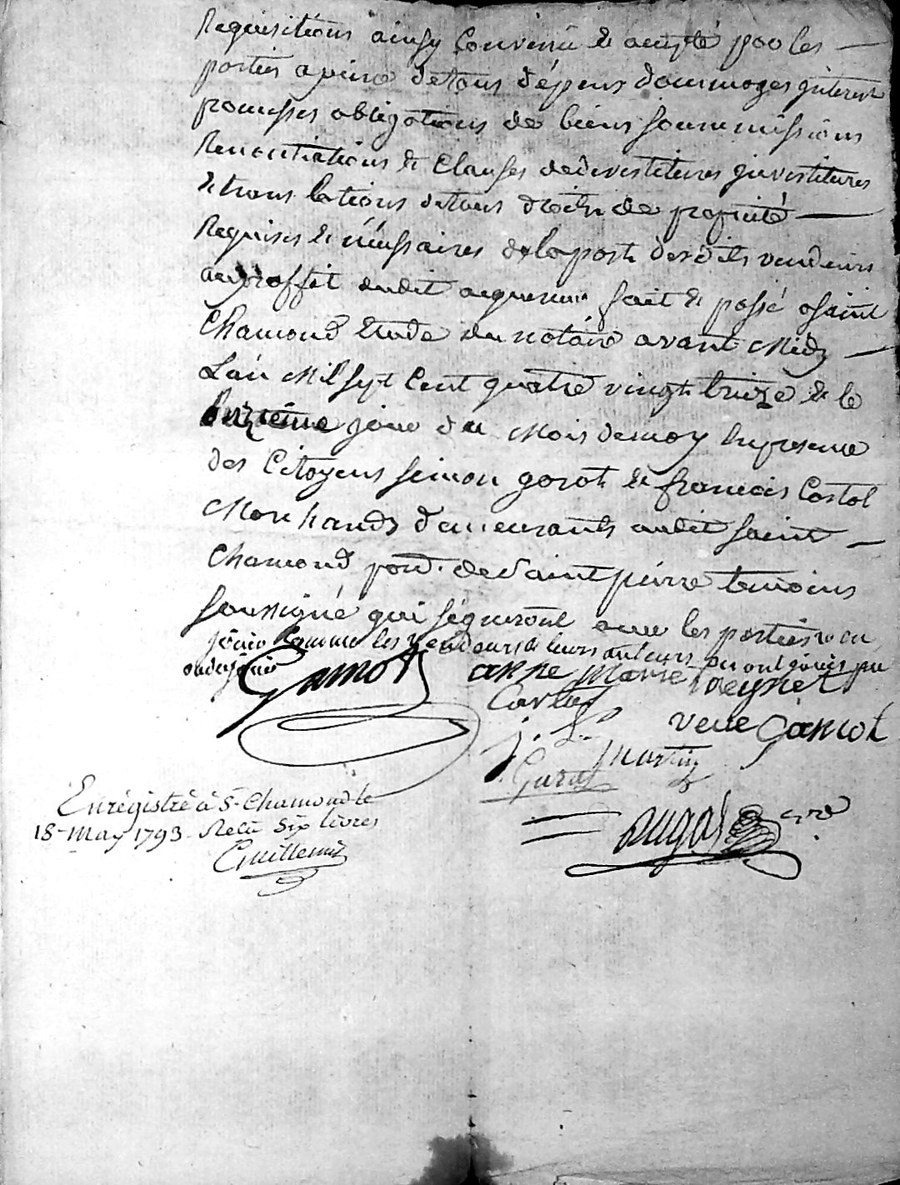 Requisitions ainsy Convenu & accepté par les —
parties a peine de tous dépens dommages interest
promesses obligations de biens soummissions
Renontiations & Clauses de devestitures jnvestitures
& translations de tous droits de propriété —
Requises & nécéssaires de la part desdits vendeurs
au proffit dudit acquereur fait & passé a saint
Chamond Etude du notaire avant Midy —
L'an Mil sept Cent quatre vingt treize & le
jour du Mois de may En presence
des Citoyens Simon gorat & francois Costol
Marchands demeurants audit saint —
Chamond de Saint pierre temoins
soussigné qui signeront avec les parties
les vendeurs & leurs auteurs ont
Gamot anne Marie peyret
veuve Gamot
j. Martin
Garat
Enrégistré à St Chamond le
18 May 1793. Reçu Six livres
Guillemin
Dugas